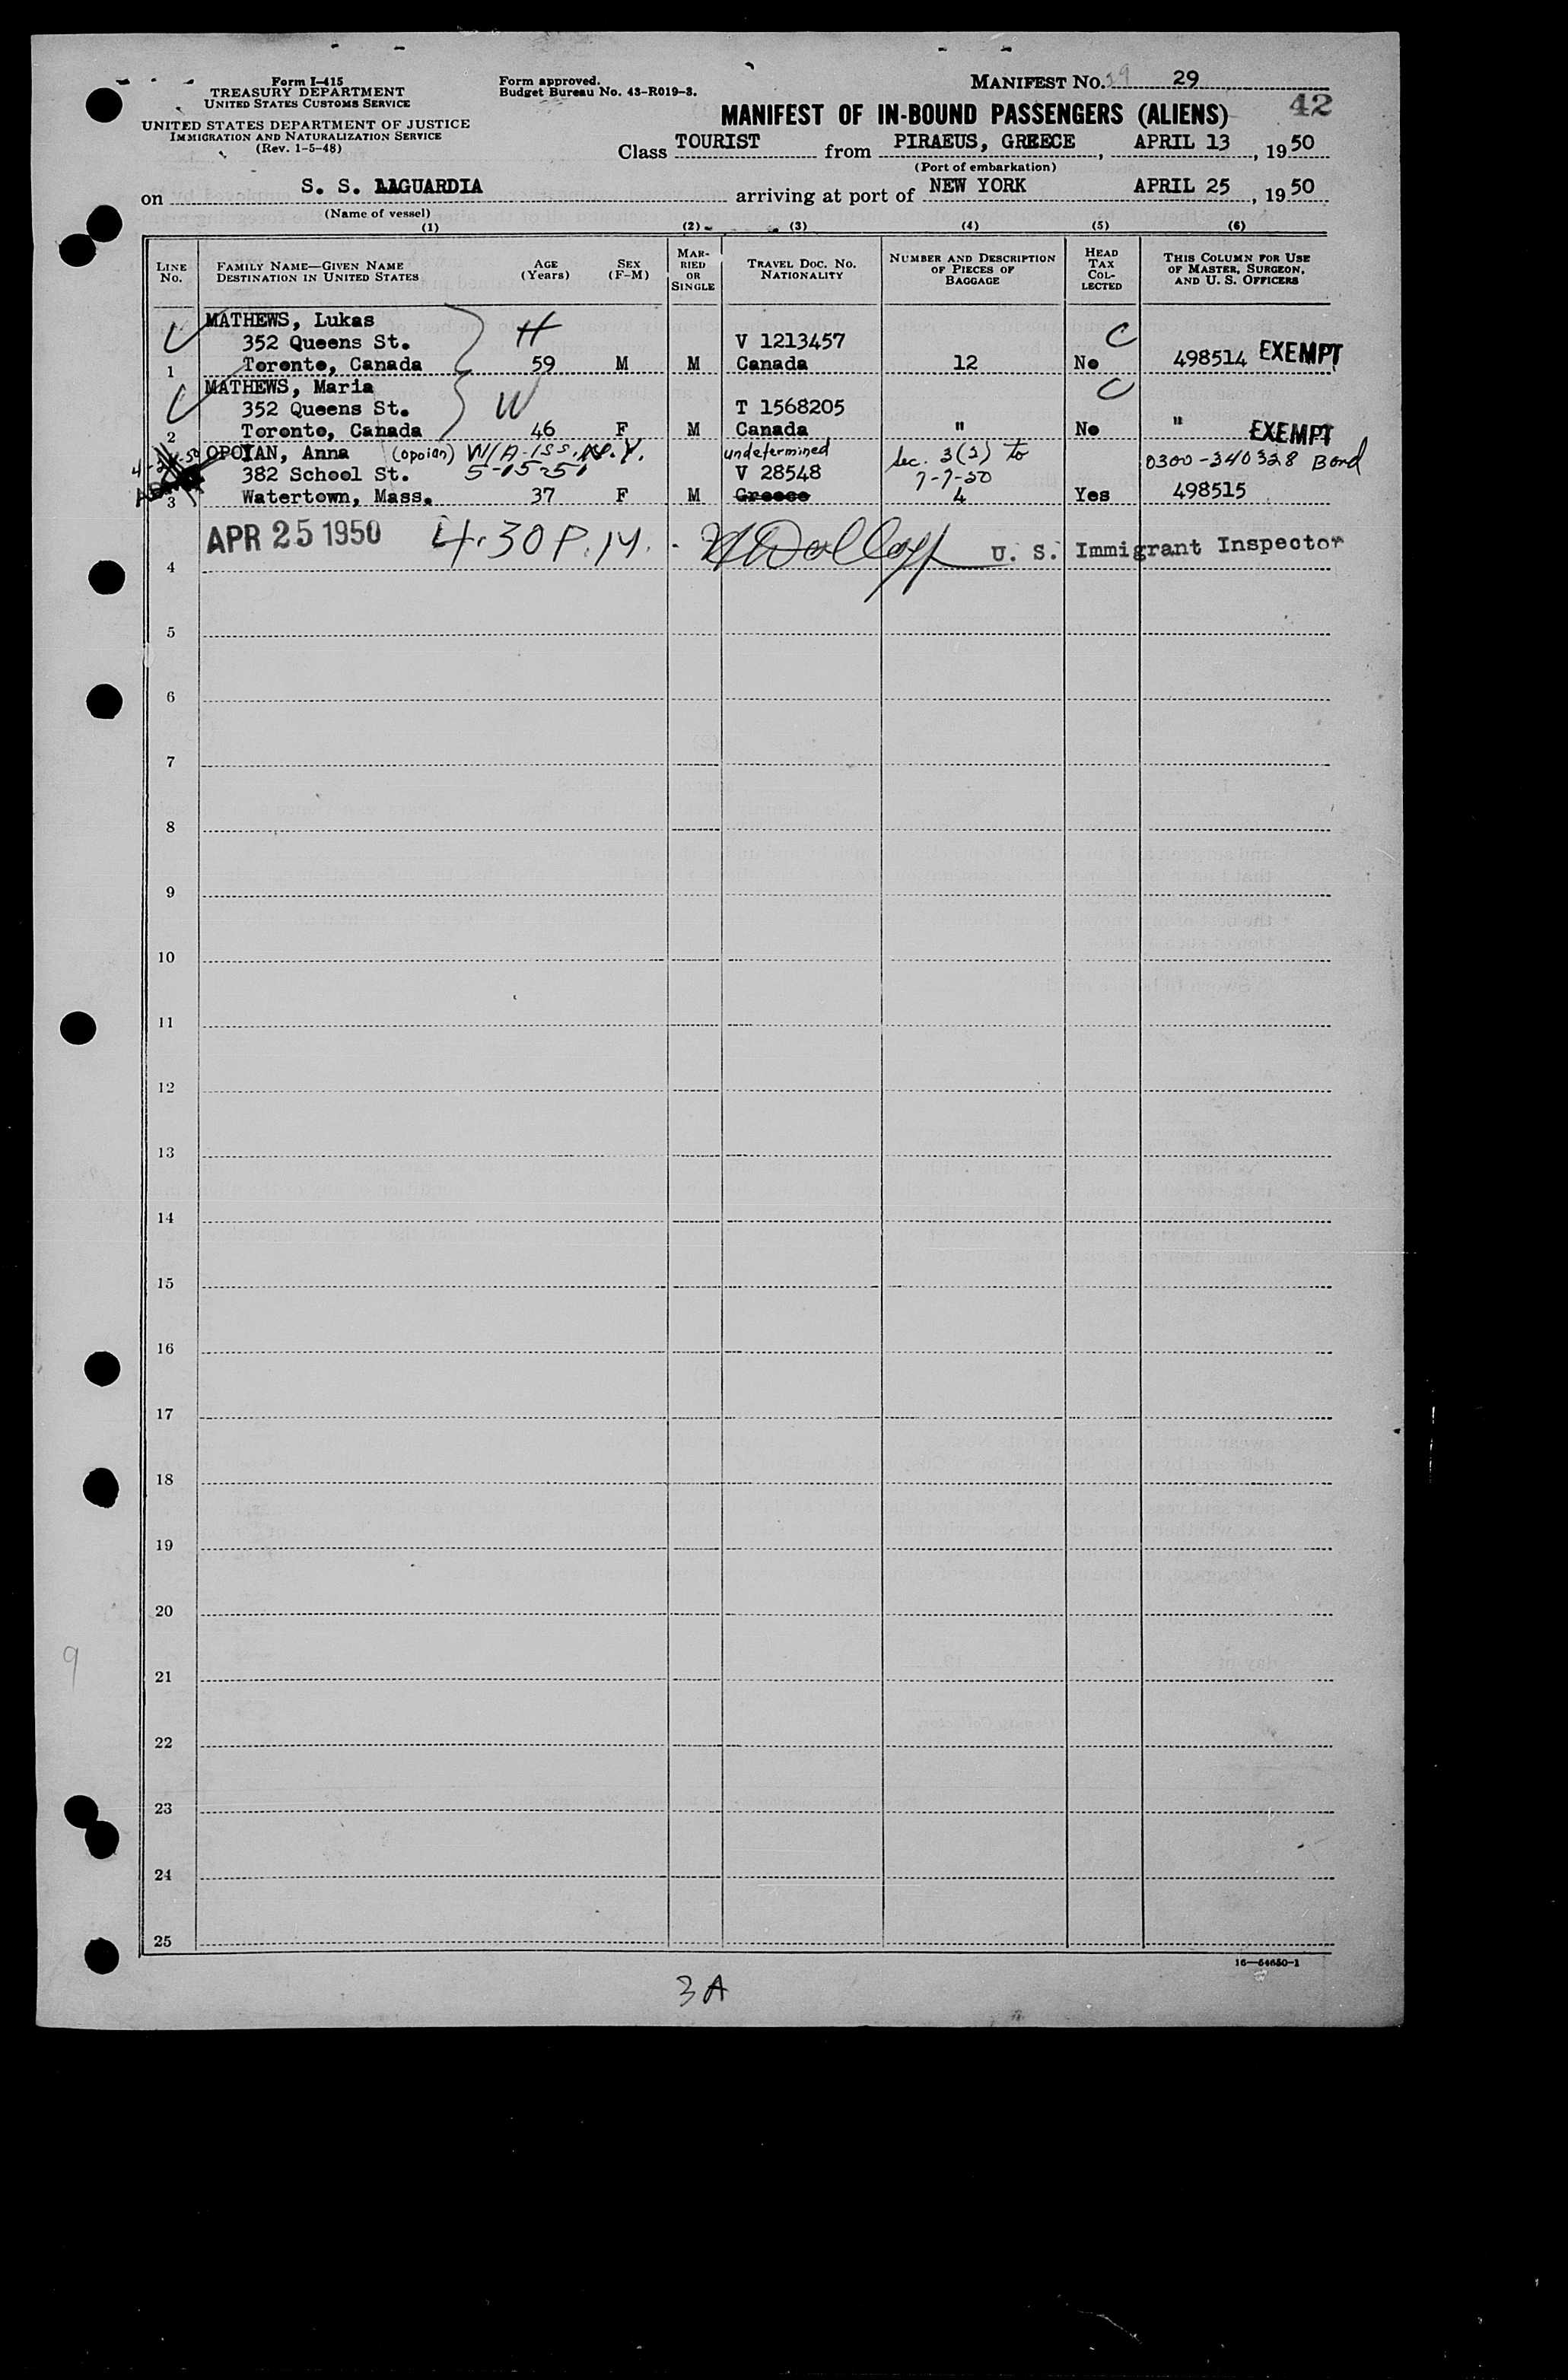 Form I-415
TREASURY DEPARTMENT
UNITED STATES CUSTOMS SERVICE
UNITED STATES DEPARTMENT OF JUSTICE
IMMIGRATION AND NATURALIZATION SERVICE
(Rev. 1-5-48)
Form approved.
Budget Bureau No. 43-R019-3.
MANIFEST No. 29
42
MANIFEST OF IN-BOUND PASSENGERS (ALIENS)
Class TOURIST from PIRAEUS, GREECE, APRIL 13, 1950
(Port of embarkation)
on S. S. LAGUARDIA arriving at port of NEW YORK APRIL 25, 1950
(Name of vessel)
(1) (2) (3) (4) (5) (6)
LINE No. FAMILY NAME—GIVEN NAME DESTINATION IN UNITED STATES AGE (Years) SEX (F-M) MARRIED OR SINGLE TRAVEL DOC. NO. NATIONALITY NUMBER AND DESCRIPTION OF PIECES OF BAGGAGE HEAD TAX COLLECTED THIS COLUMN FOR USE OF MASTER, SURGEON, AND U. S. OFFICERS
MATHEWS, Lukas H
352 Queens St. V 1213457 C
1 Toronto, Canada 59 M M Canada 12 No 498514 EXEMPT
MATHEWS, Maria W C
352 Queens St. T 1568205
2 Toronto, Canada 46 F M Canada " No " EXEMPT
OPOIAN, Anna (opoian) W/A-ISS. N.Y. undetermined Sec. 3(2) to 0300-340328 Bond
382 School St. 5-15-51 V 28548 7-7-50
3 Watertown, Mass. 37 F M Greece 4 Yes 498515
APR 25 1950 4:30 P.M. U. S. Immigrant Inspector
4
5
6
7
8
9
10
11
12
13
14
15
16
17
18
19
20
21
22
23
24
25
9
16—54650-1
3A